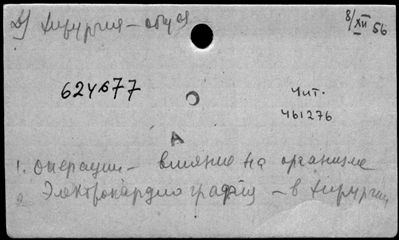 2) Хирургия – общая
8/XII 56
624677
Чит.
461276
А
1. Операции – влияние на организм
2 Электрокардиография – в хирургии